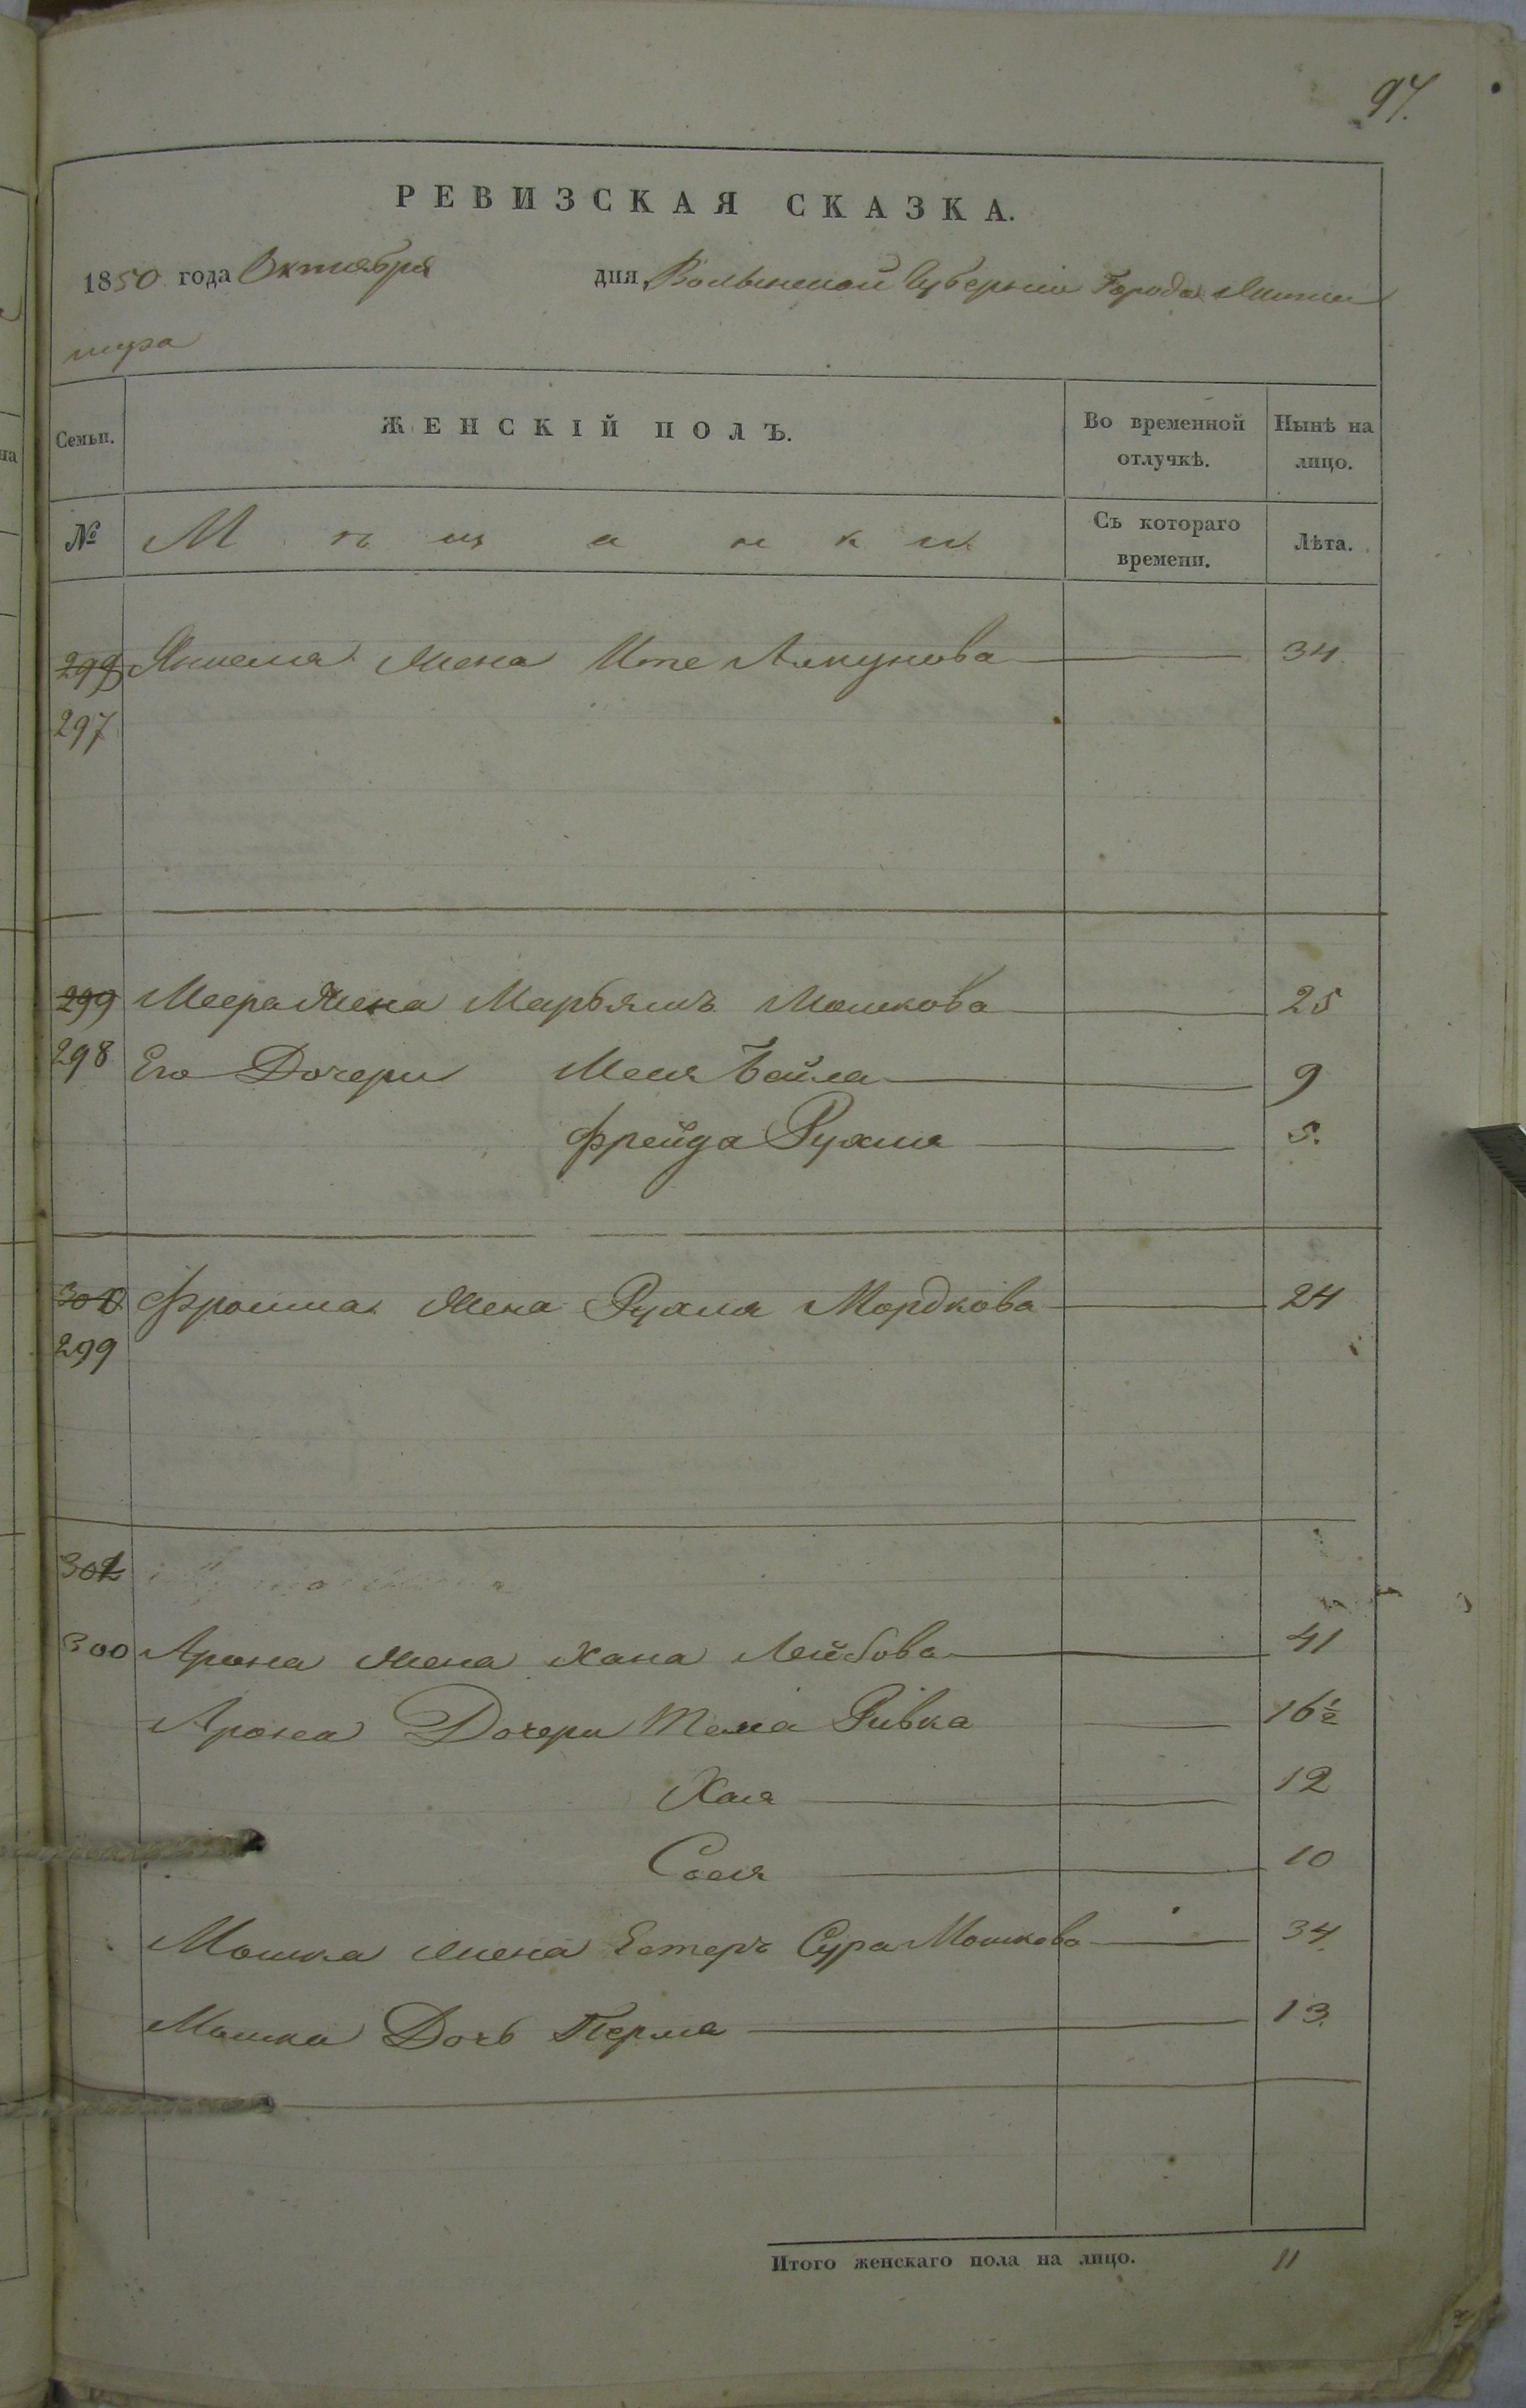 97.
РЕВИЗСКАЯ СКАЗКА.
1850 года Октября дня Волынской Губернiи Города Жито
мира
Семьи. ЖЕНСКIЙ ПОЛЪ. Во временной отлучкѣ. Нынѣ на лицо.
№ Мѣщанки Съ котораго времени. Лѣта.
299 жена Ите 34
297
299 Меера жена Марьямъ Мошкова 25
298 Его Дочери Меня Бейла 9
Фрейда Рухля 5.
300 Фроима жена Рухля Мордкова 24
299
301
300 Арона жена Хана Лейбова 41
Арона Дочери Ривка 16½
Хая 12
10
Мошка жена Естеръ Сура Мошкова 34.
Мошка Дочь Перля 13.
Итого женскаго пола на лицо. 11